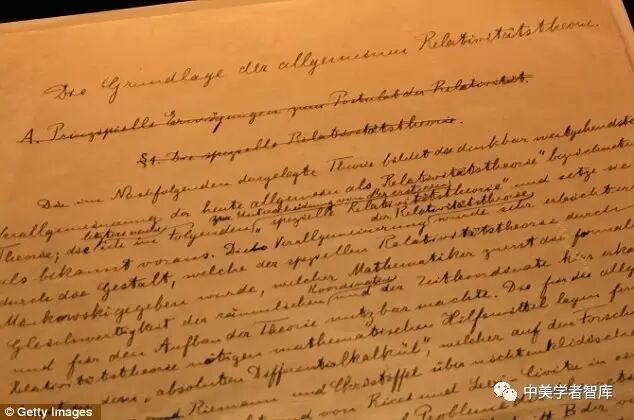 Die Grundlage der allgemeinen Relativitätstheorie.
A. Prinzipielle Erwägungen zum Postulat der Relativität.
§1. Die spezielle Relativitätstheorie.
Die im Nachfolgenden dargelegte Theorie bildet die denkbar weitgehendste
Verallgemeinerung der heute allgemein als „Relativitätstheorie" bezeichneten
letztere nenne zur Unterscheidung von der ersteren
Theorie; die ich im Folgenden „spezielle Relativitätstheorie" und setze sie
der Relativitätstheorie
als bekannt voraus. Die Verallgemeinerung wurde sehr erleichtert
durch die Gestalt, welche der speziellen Relativitätstheorie durch
Minkowski gegeben wurde, welcher Mathematiker zuerst die formale
Koordinaten
Gleichwertigkeit der räumlichen und der Zeitkoordinate klar erka
und für den Aufbau der Theorie nutzbar machte. Die für die allg
Relativitätstheorie nötigen mathematischen Hilfsmittel lagen fer
dem „absoluten Differentialkalkül", welcher auf den Forsch
Riemann und Christoffel über nichteuklidische
und von Ricci und Levi-Civita in ei
Probleme
中美学者智库
© Getty Images